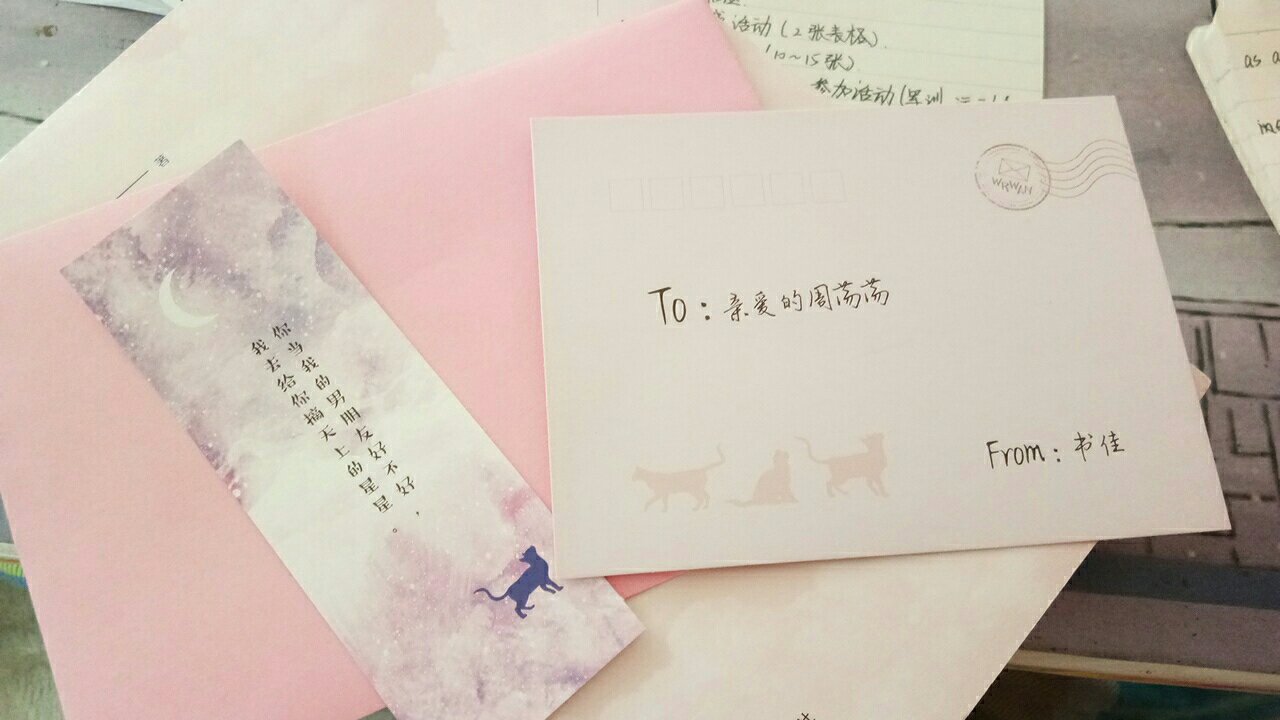 活动(2张表格)
(10~15张)
参加活动(军训
as a
著
WRWAY
To:亲爱的周荡荡
From:书佳
你当我的男朋友好不好,
我去给你摘天上的星星。